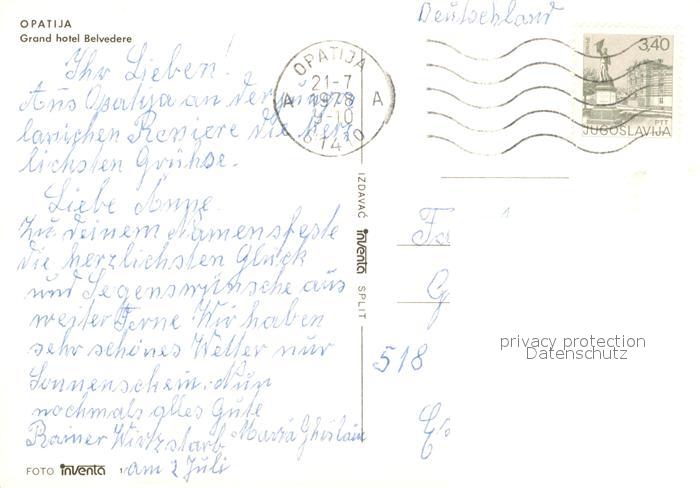 OPATIJA
Grand hotel Belvedere
Ihr Lieben!
Aus Opatija an der
Reviere die herz
lichsten Grühse.
Liebe Anne.
Zu deinem Namensfeste
die herzlichsten Glück
und Segenswünsche aus
weiter Ferne. Wir haben
sehr schönes Wetter nur
Sonnenschein. Nun
nochmals alles Gute
Rainer Wirtz starb Maria
am 2 Juli
FOTO inventa
IZDAVAČ inventa SPLIT
Deutschland
OPATIJA
21-7
1978
A A
9-10
61410
3,40
PTT
JUGOSLAVIJA
Fa
G
518
privacy protection
Datenschutz